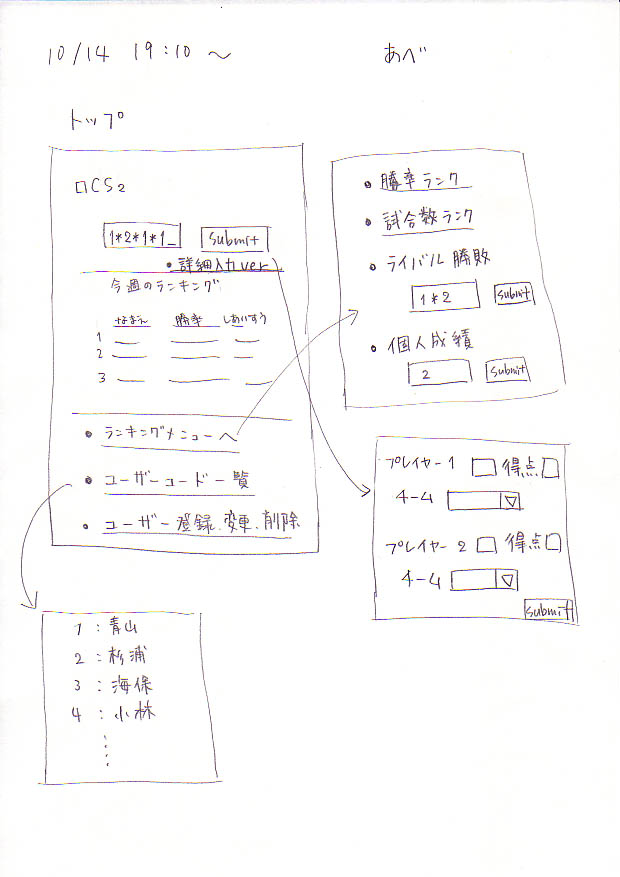 10/14 19:10 〜
あべ
トップ
ロCS2
1*2*1*1_ submit
・詳細入力ver
今週のランキング
なまえ 勝率 しあいすう
1
2
3
・ランキングメニューへ
・ユーザーコード一覧
・ユーザー登録、変更、削除
・勝率ランク
・試合数ランク
・ライバル勝敗
1*2 submit
・個人成績
2 submit
プレイヤー1 得点
チーム ▽
プレイヤー2 得点
チーム ▽
submit
1:青山
2:杉浦
3:海保
4:小林